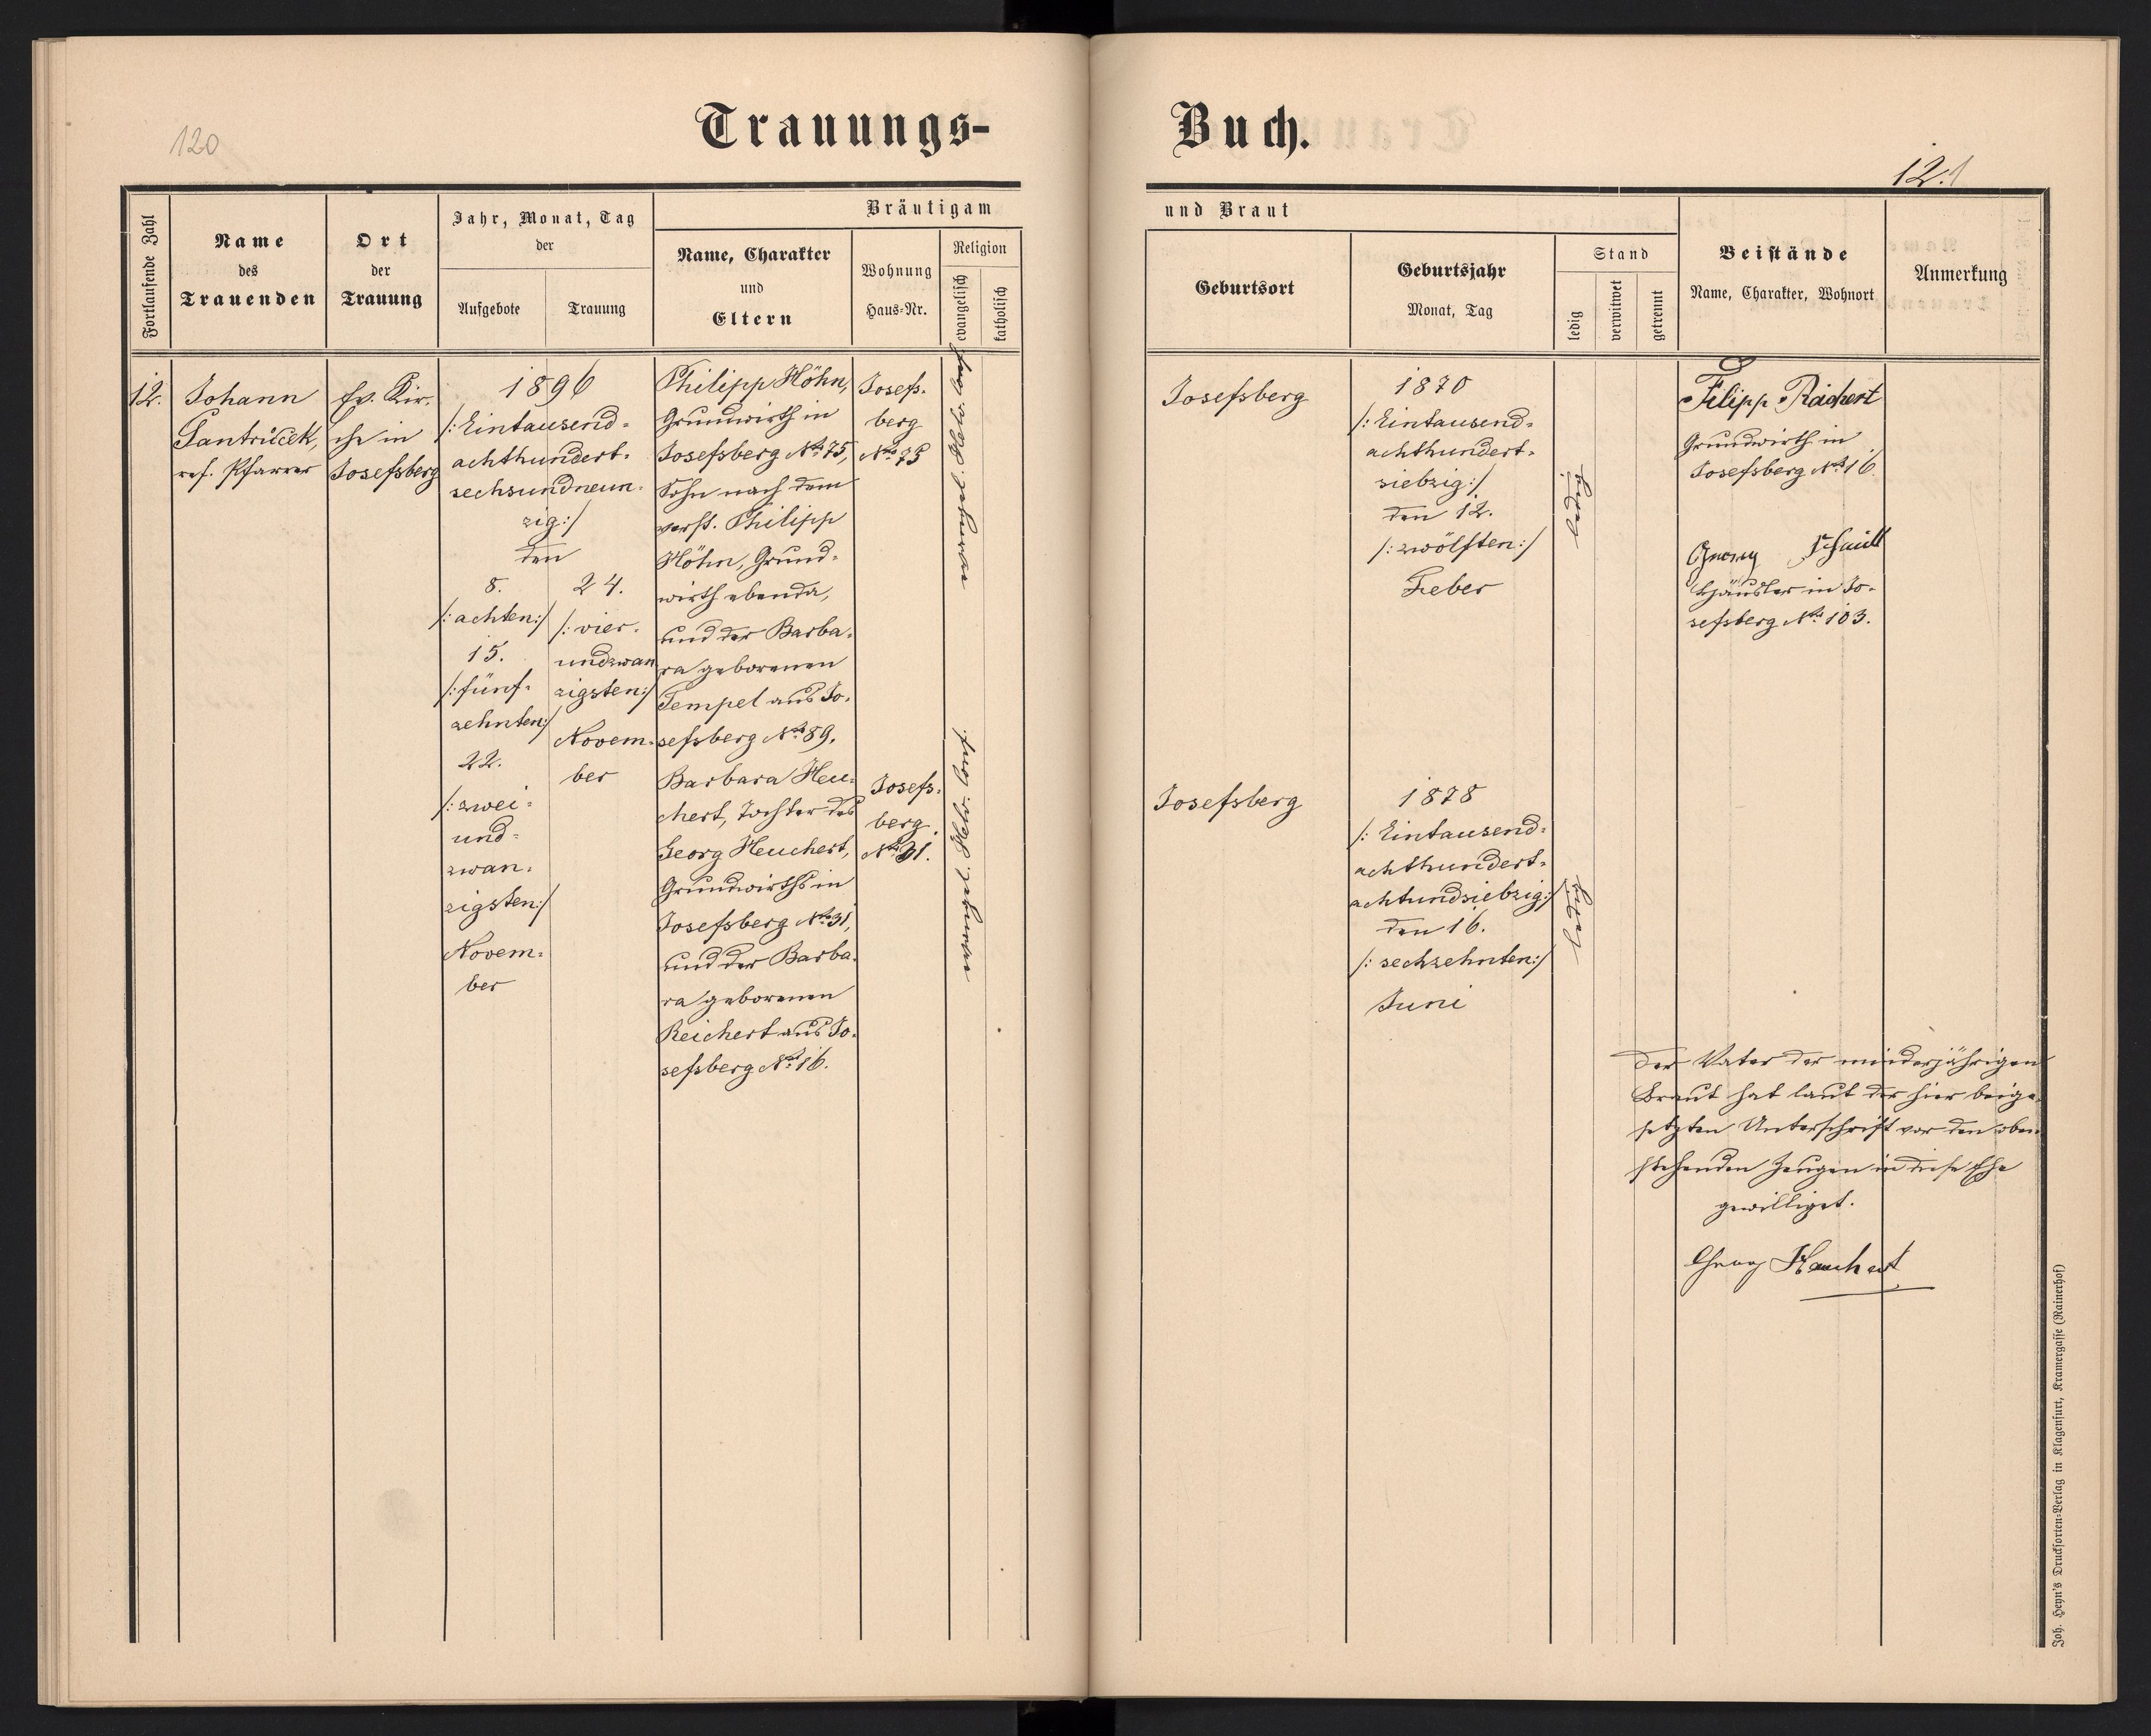 120
Trauungs-
Buch.
12.1
Fortlaufende Zahl
Name
des
Trauenden
Ort
der
Trauung
Jahr, Monat, Tag
der
Aufgebote
Trauung
Bräutigam
Name, Charakter
und
Eltern
Wohnung
Haus-Nr.
Religion
evangelisch
katholisch
und Braut
Geburtsort
Geburtsjahr
Monat, Tag
Stand
ledig
verwitwet
getrennt
Beistände
Name, Charakter, Wohnort
Anmerkung
12.
Johann
Jantriček,
ref. Pfarrer
Ev. Kir-
che in
Josefsberg
1896
/:Eintausend-
achthundert-
sechsundneun-
zig:/
den
8.
/:achten:/
15.
/:fünf-
zehnten:/
22.
/:zwei-
und-
zwan-
zigsten:/
Novem-
ber
24.
/:vier-
undzwan
zigsten:/
Novem-
ber
Philipp Höhn,
Grundwirth in
Josefsberg No 75,
Sohn nach dem
verst. Philipp
Höhn, Grund-
wirth ebenda,
und der Barba-
ra geborenen
Tempel aus Jo-
sefsberg No 89.
Josefs-
berg
No 75
evangel. Helv. Conf.
Barbara Heu-
chert, Tochter des
Georg Heuchert,
Grundwirths in
Josefsberg No 31,
und der Barba-
ra geborenen
Reichert aus Jo-
sefsberg No 16.
Josefs-
berg
No 31.
evangel. Helv. Conf.
Josefsberg
1870
/:Eintausend-
achthundert-
siebzig:/
den 12.
/:zwölften:/
Feber
ledig
Filipp Raichert
Grundwirth in
Josefsberg No 16.
Georg Schmidt
Häusler in Jo-
sefsberg No 103.
Josefsberg
1878
/:Eintausend-
achthundert-
achtundsiebzig:/
den 16.
/:sechzehnten:/
Juni
ledig
Der Vater der minderjährigen
Braut hat laut der hier beige-
setzten Unterschrift vor den oben-
stehenden Zeugen in diese Ehe
gewilliget.
Georg Hauchert
Joh. Heyn's Drucksorten-Verlag in Klagenfurt, Kramergasse (Rainerhof)